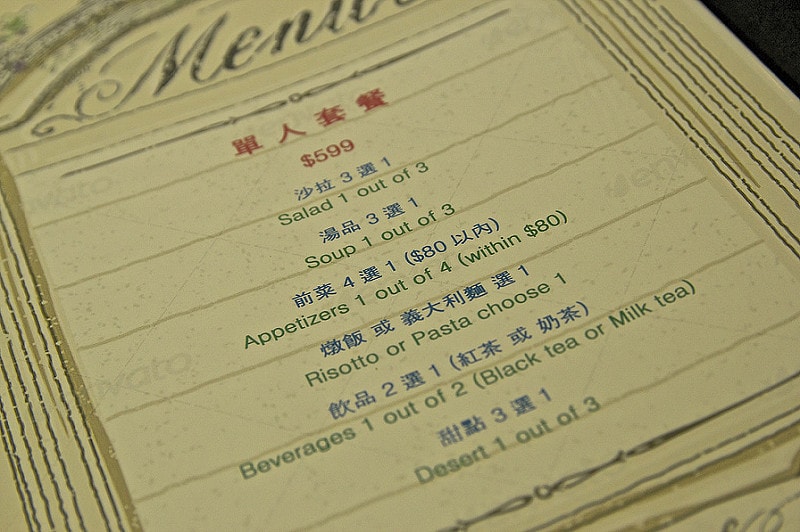 Menu
單人套餐
$599
沙拉 3 選 1
Salad 1 out of 3
湯品 3 選 1
Soup 1 out of 3
前菜 4 選 1 ($80 以內)
Appetizers 1 out of 4 (within $80)
燉飯 或 義大利麵 選 1
Risotto or Pasta choose 1
飲品 2 選 1 (紅茶 或 奶茶)
Beverages 1 out of 2 (Black tea or Milk tea)
甜點 3 選 1
Desert 1 out of 3